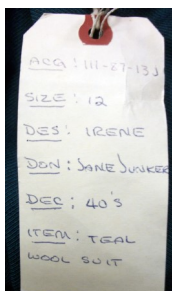 ACQ: 111-27-13J
SIZE: 12
DES: IRENE
DON: JANE JUNKER
DEC: 40's
ITEM: TEAL
WOOL SUIT